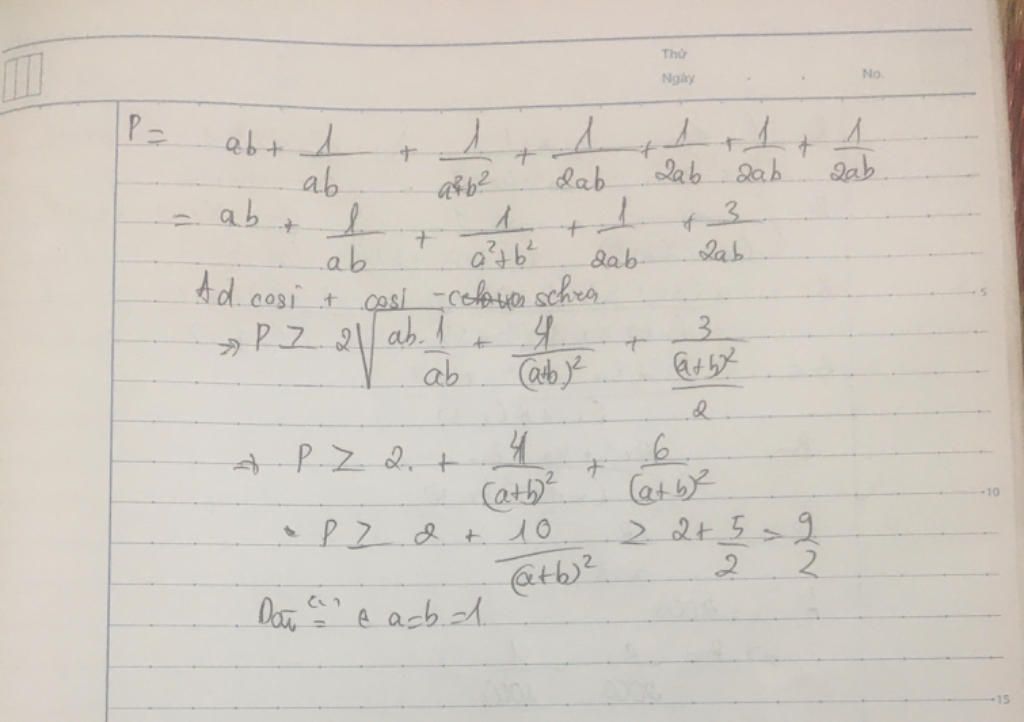 Thứ
Ngày . . No.
P = ab + 1/ab + 1/(a²+b²) + 1/2ab + 1/2ab + 1/2ab + 1/2ab
= ab + 1/ab + 1/(a²+b²) + 1/2ab + 3/2ab
Ad cosi + cosi - schra
5
=> P ≥ 2√(ab.1/ab) + 4/(a+b)² + 3/((a+b)²/2)
=> P ≥ 2. + 4/(a+b)² + 6/(a+b)²
10
P ≥ 2 + 10/(a+b)² ≥ 2 + 5/2 = 9/2
Dấu "=" a=b=1
15